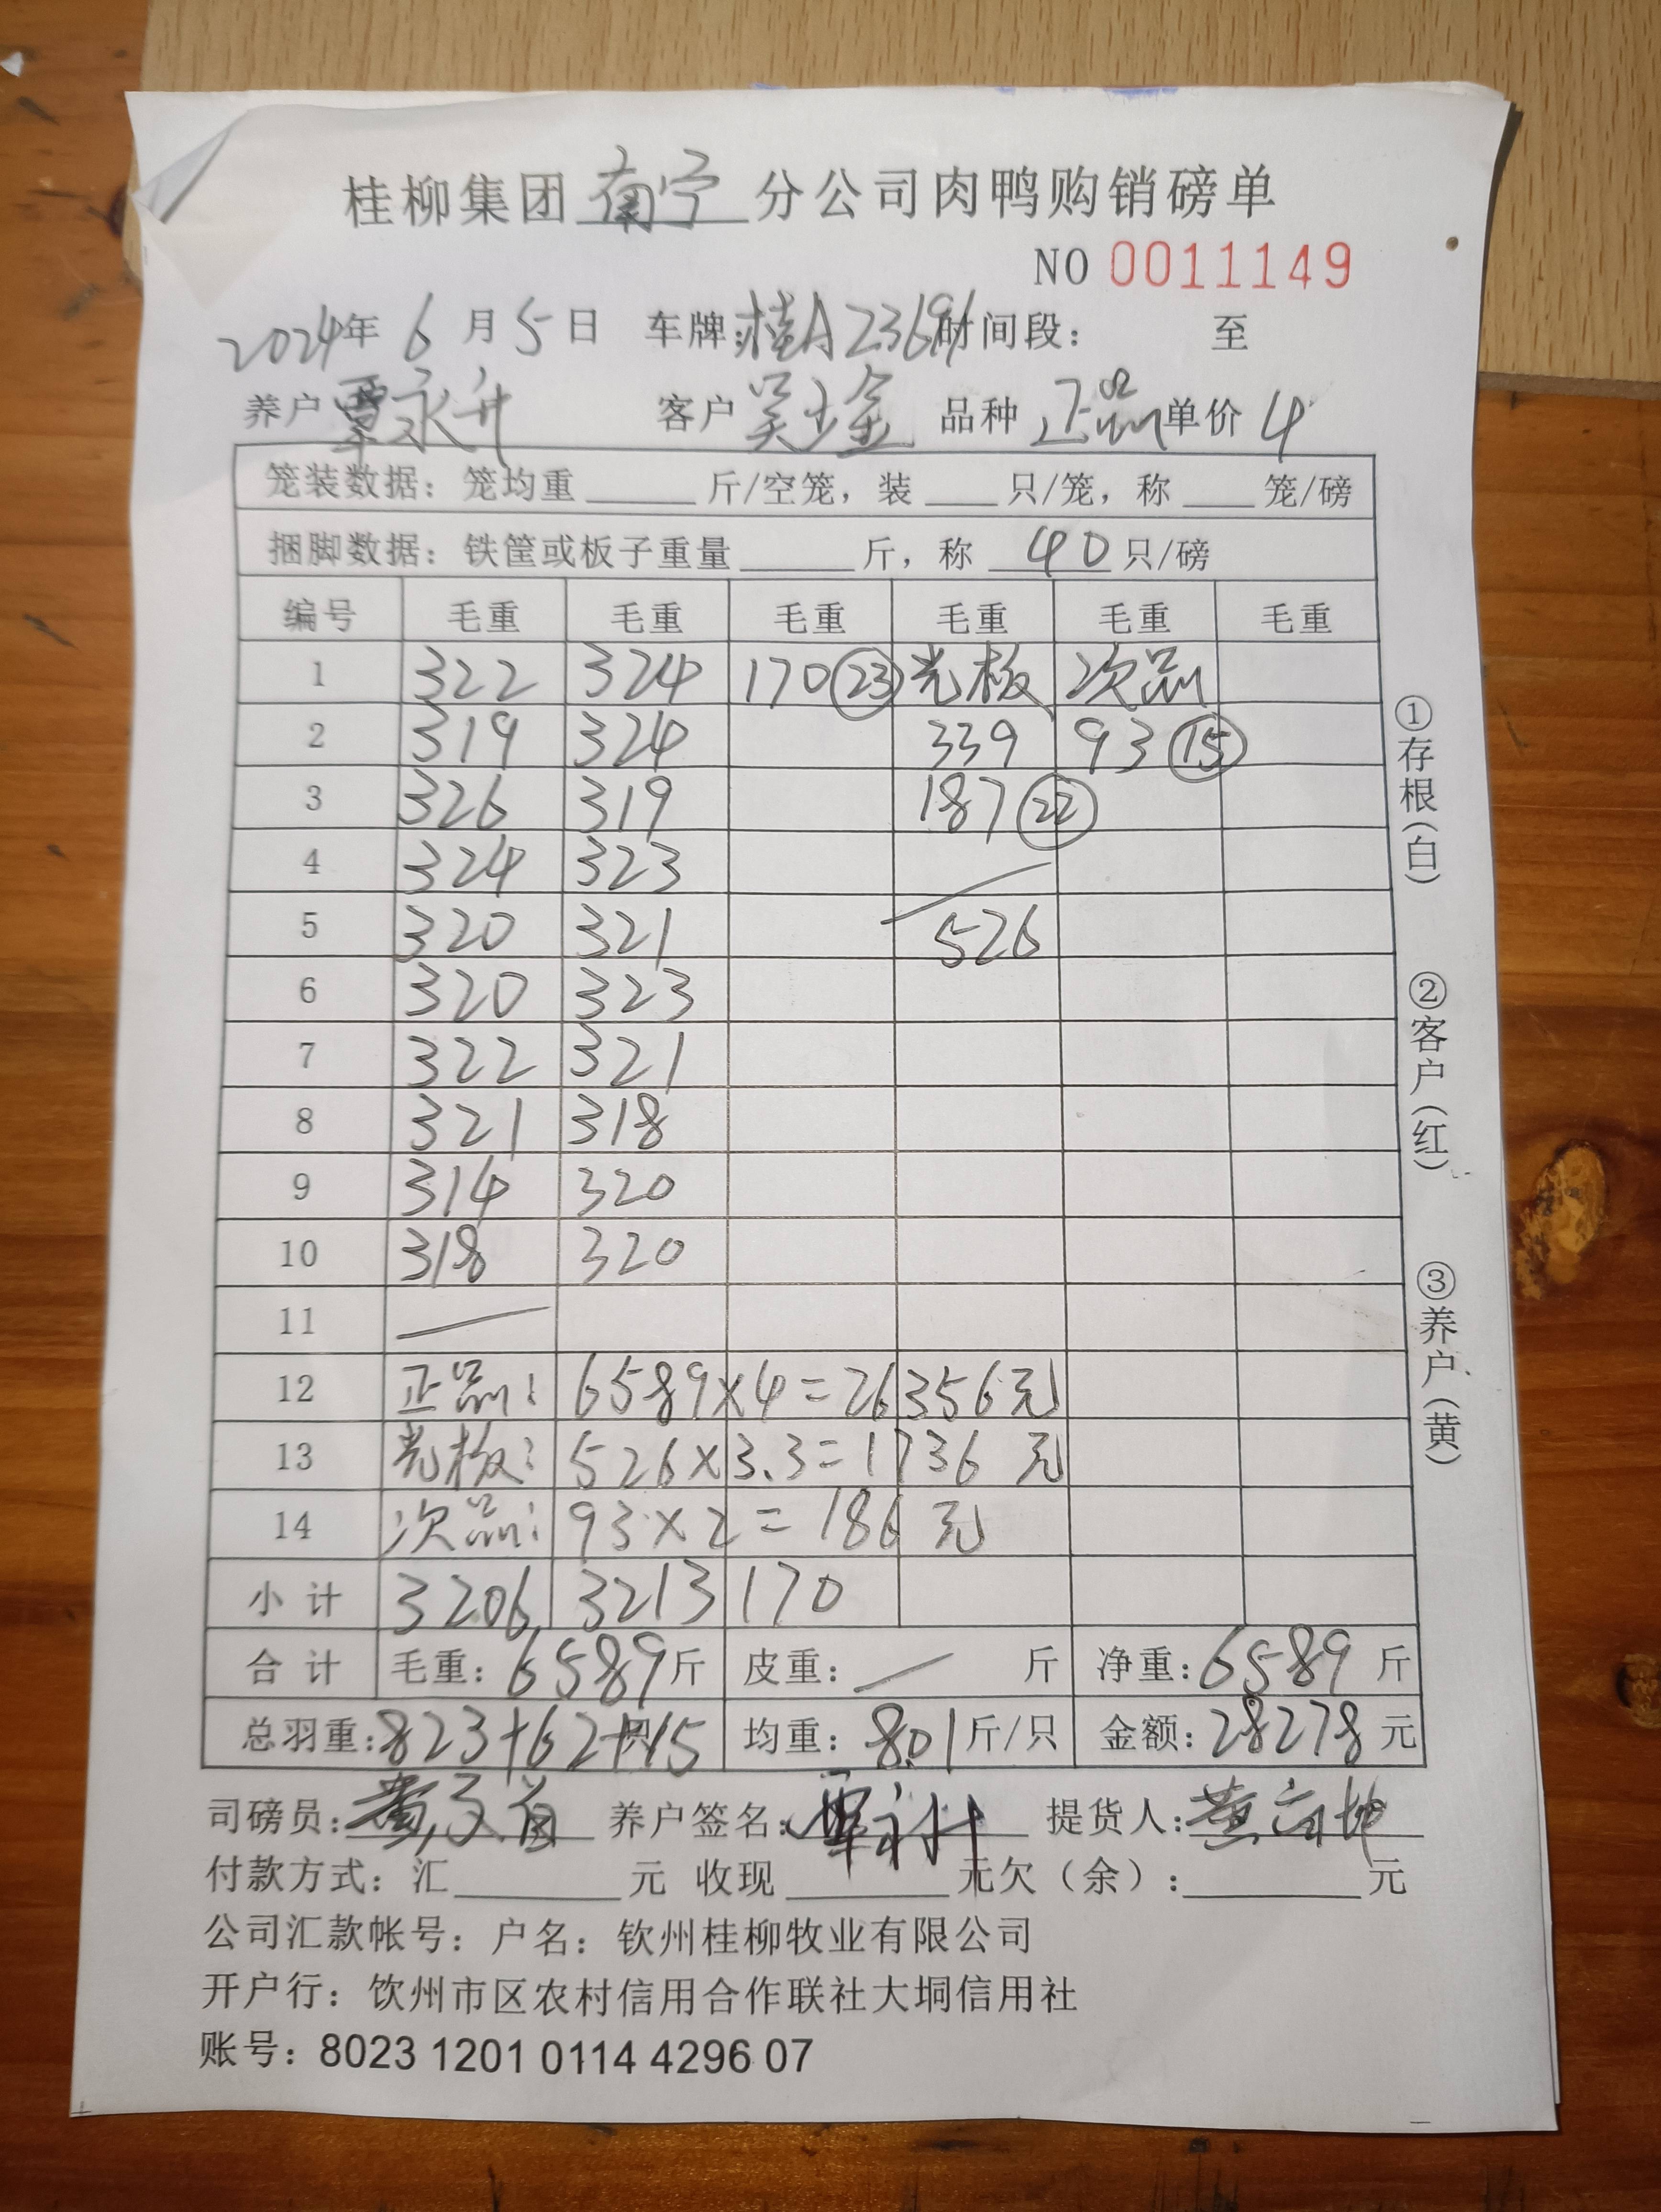 桂柳集团南宁分公司肉鸭购销磅单
NO 0011149
2024年 6 月 5 日 车牌:桂A 时间段: 至
养户 覃永升 客户 品种 正品 单价 4
笼装数据: 笼均重 斤/空笼, 装 只/笼, 称 笼/磅
捆脚数据: 铁筐或板子重量 斤, 称 40 只/磅
编号 毛重 毛重 毛重 毛重 毛重 毛重
1 322 324 170 23 光板 次品
2 319 324 339 93 15
3 326 319 187 22
4 324 323
5 320 321 526
6 320 323
7 322 321
8 321 318
9 314 320
10 318 320
11
12 正品: 6589×4=26356元
13 光板: 526×3.3=1736 元
14 次品: 93×2=186 元
小计 3206 3213 170
合计 毛重: 6589斤 皮重: — 斤 净重: 6589 斤
总羽重: 823+62+15 只 均重: 8.01斤/只 金额: 28278 元
司磅员: 养户签名: 覃永升 提货人:
付款方式: 汇 元 收现 元欠(余): 元
公司汇款帐号: 户名: 钦州桂柳牧业有限公司
开户行: 饮州市区农村信用合作联社大垌信用社
账号: 8023 1201 0114 4296 07
①存根(白)
②客户(红)
③养户(黄)